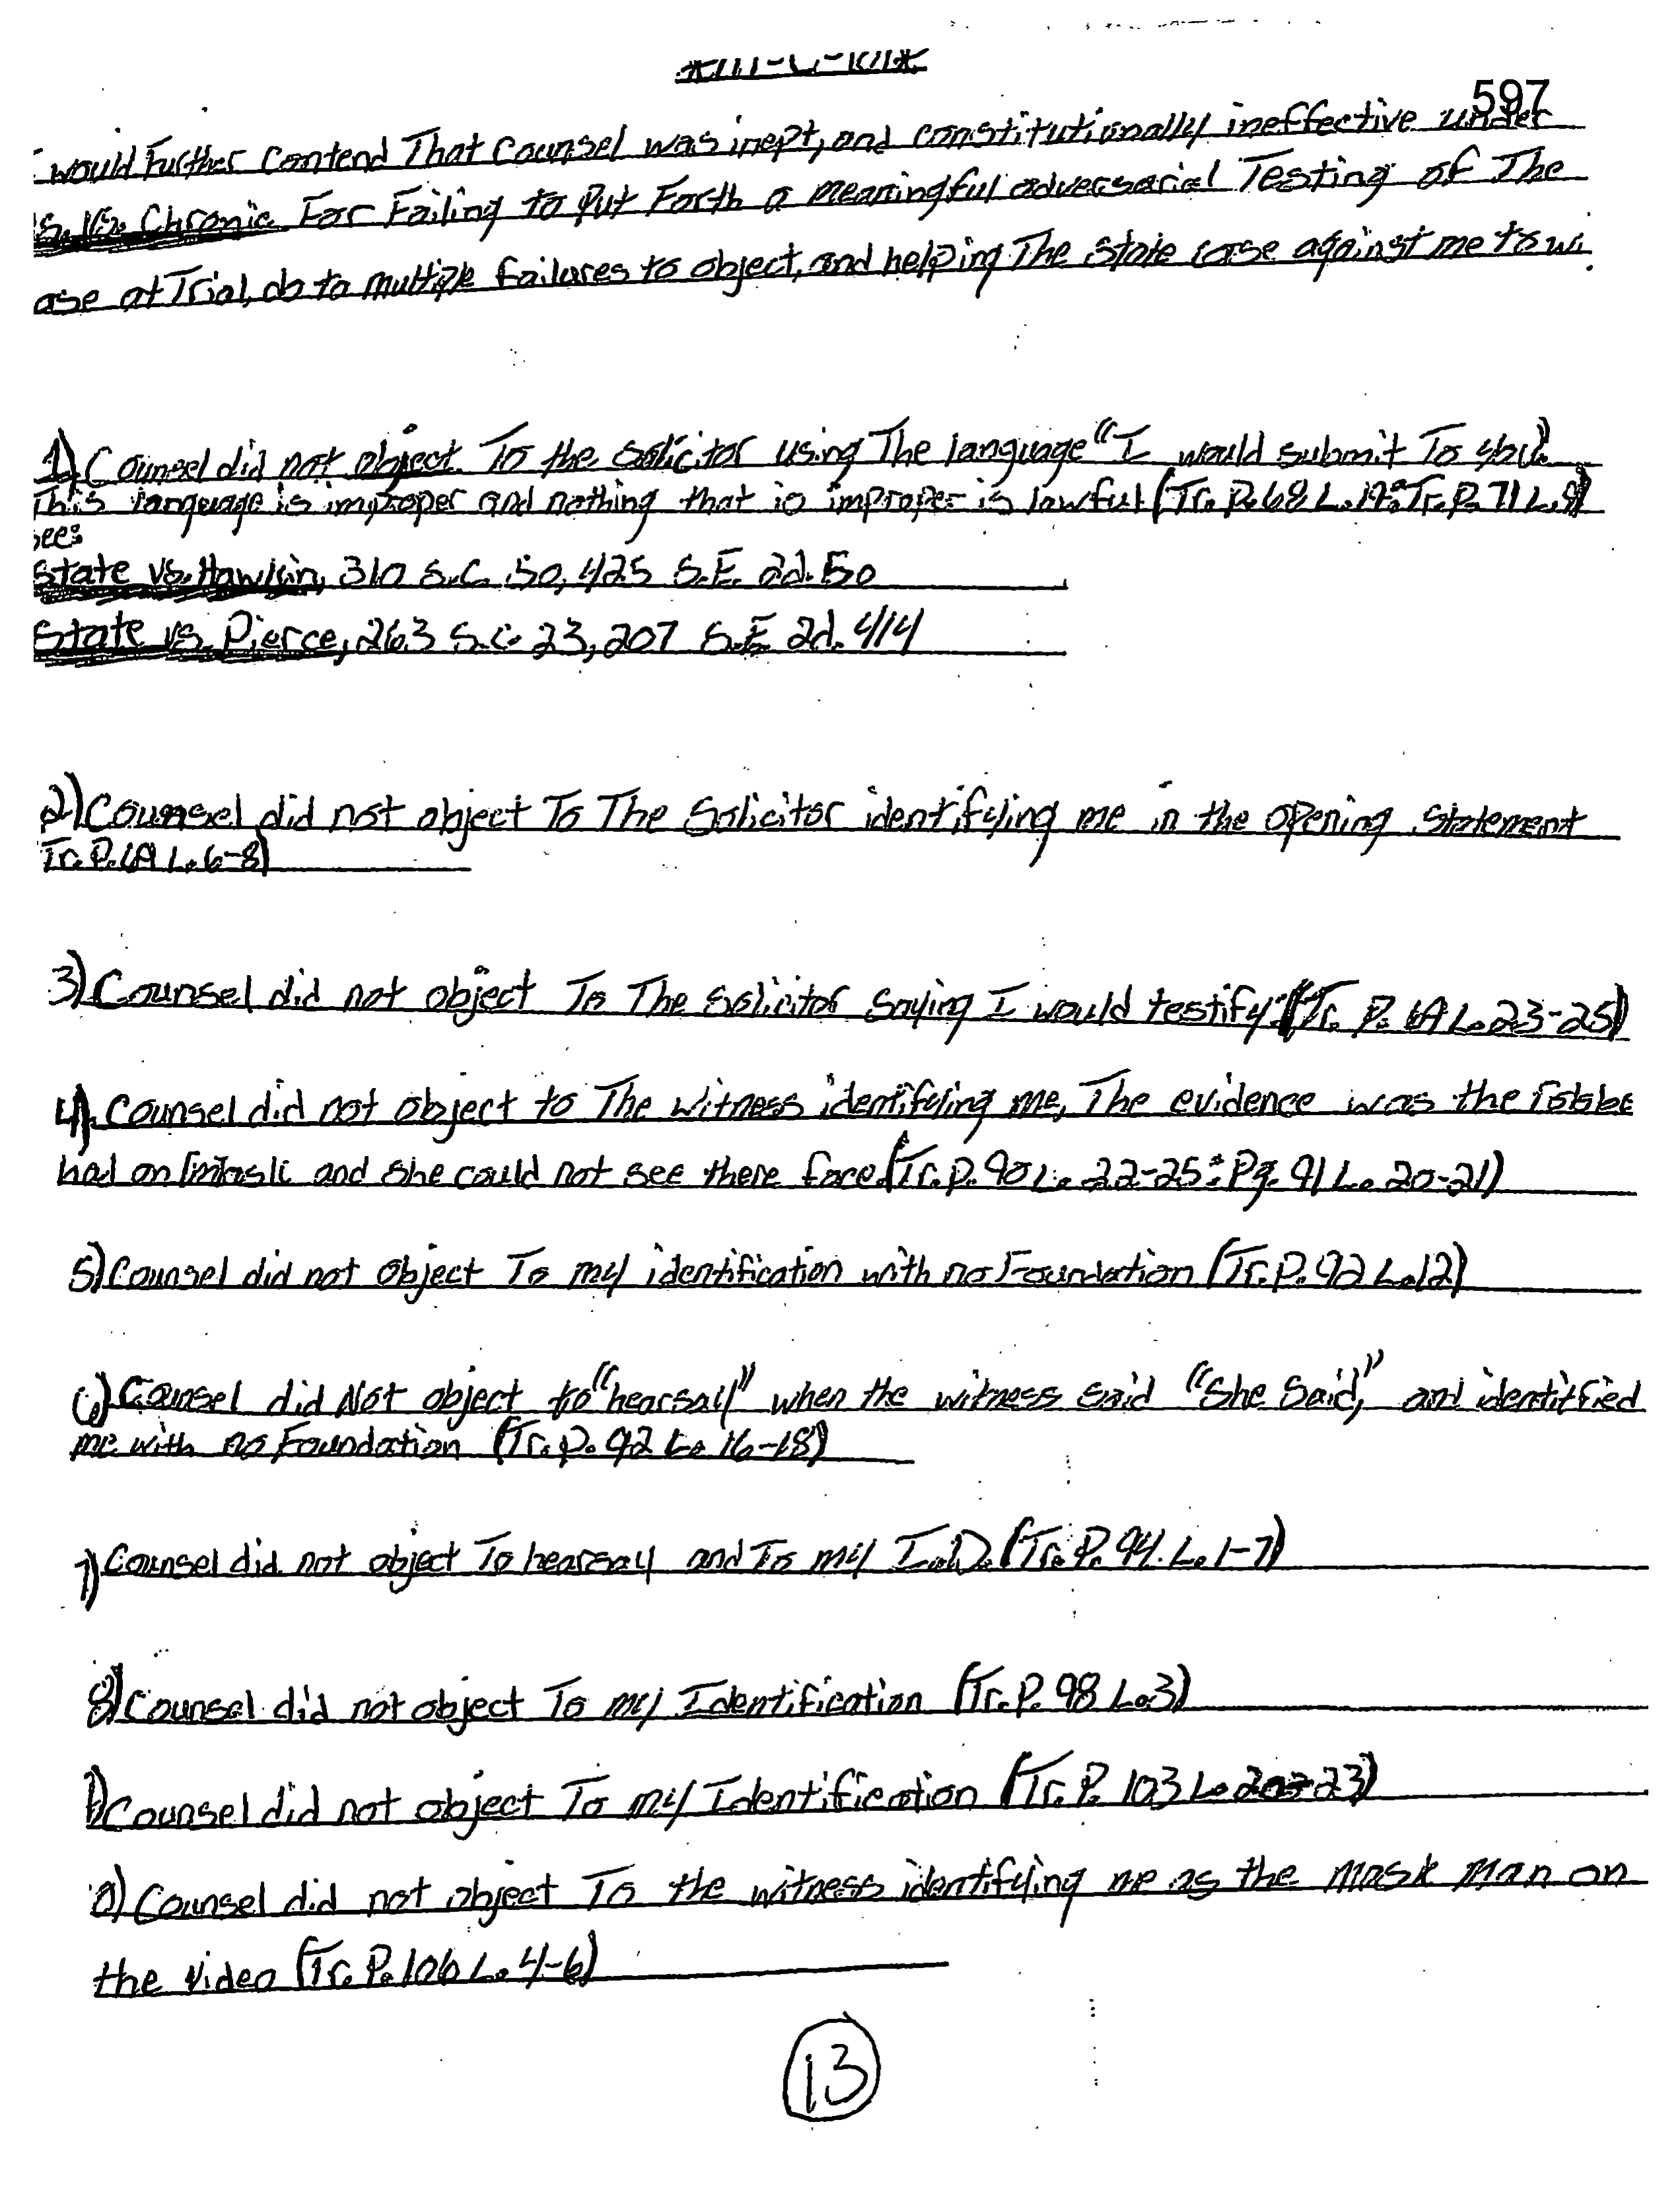 597
would Further Contend That Counsel was inept, and constitutionally ineffective under
S. Vs. Chronic For Failing to Put Forth a meaningful adversarial Testing of The
ase at Trial, do to multiple failures to object, and helping The State case against me to wi
1) Counsel did not object To the Solicitor using The language "I would submit To you."
This language is improper and nothing that is improper is lawful (Tr. P. 68 L. 19: Tr. P. 71 L. 9)
see:
State vs. Hawkin, 310 S.C. 50, 425 S.E. 2d. 50
State vs. Pierce, 263 S.C. 23, 207 S.E. 2d. 414
2) Counsel did not object To The Solicitor identifying me in the opening statement
Tr. P. 69 L. 6-8)
3) Counsel did not object To The Solicitor Saying I would testify (Tr. P. 69 L. 23-25)
4) Counsel did not object to The Witness identifying me, The evidence was the robbe
had on mask and she could not see there face (Tr. P. 90 L. 22-25: Pg. 91 L. 20-21)
5) Counsel did not object To my identification with no Foundation (Tr. P. 92 L. 12)
6) Counsel did Not object to "hearsay" when the witness said "She Said," and identified
me with no Foundation (Tr. P. 92 L. 16-18)
7) Counsel did not object To hearsay and To my I.D. (Tr. P. 94. L. 1-7)
8) Counsel did not object To my Identification (Tr. P. 98 L. 3)
) Counsel did not object To my Identification (Tr. P. 103 L. 20-23)
0) Counsel did not object To the witness identifying me as the mask man on
the video (Tr. P. 106 L. 4-6)
13